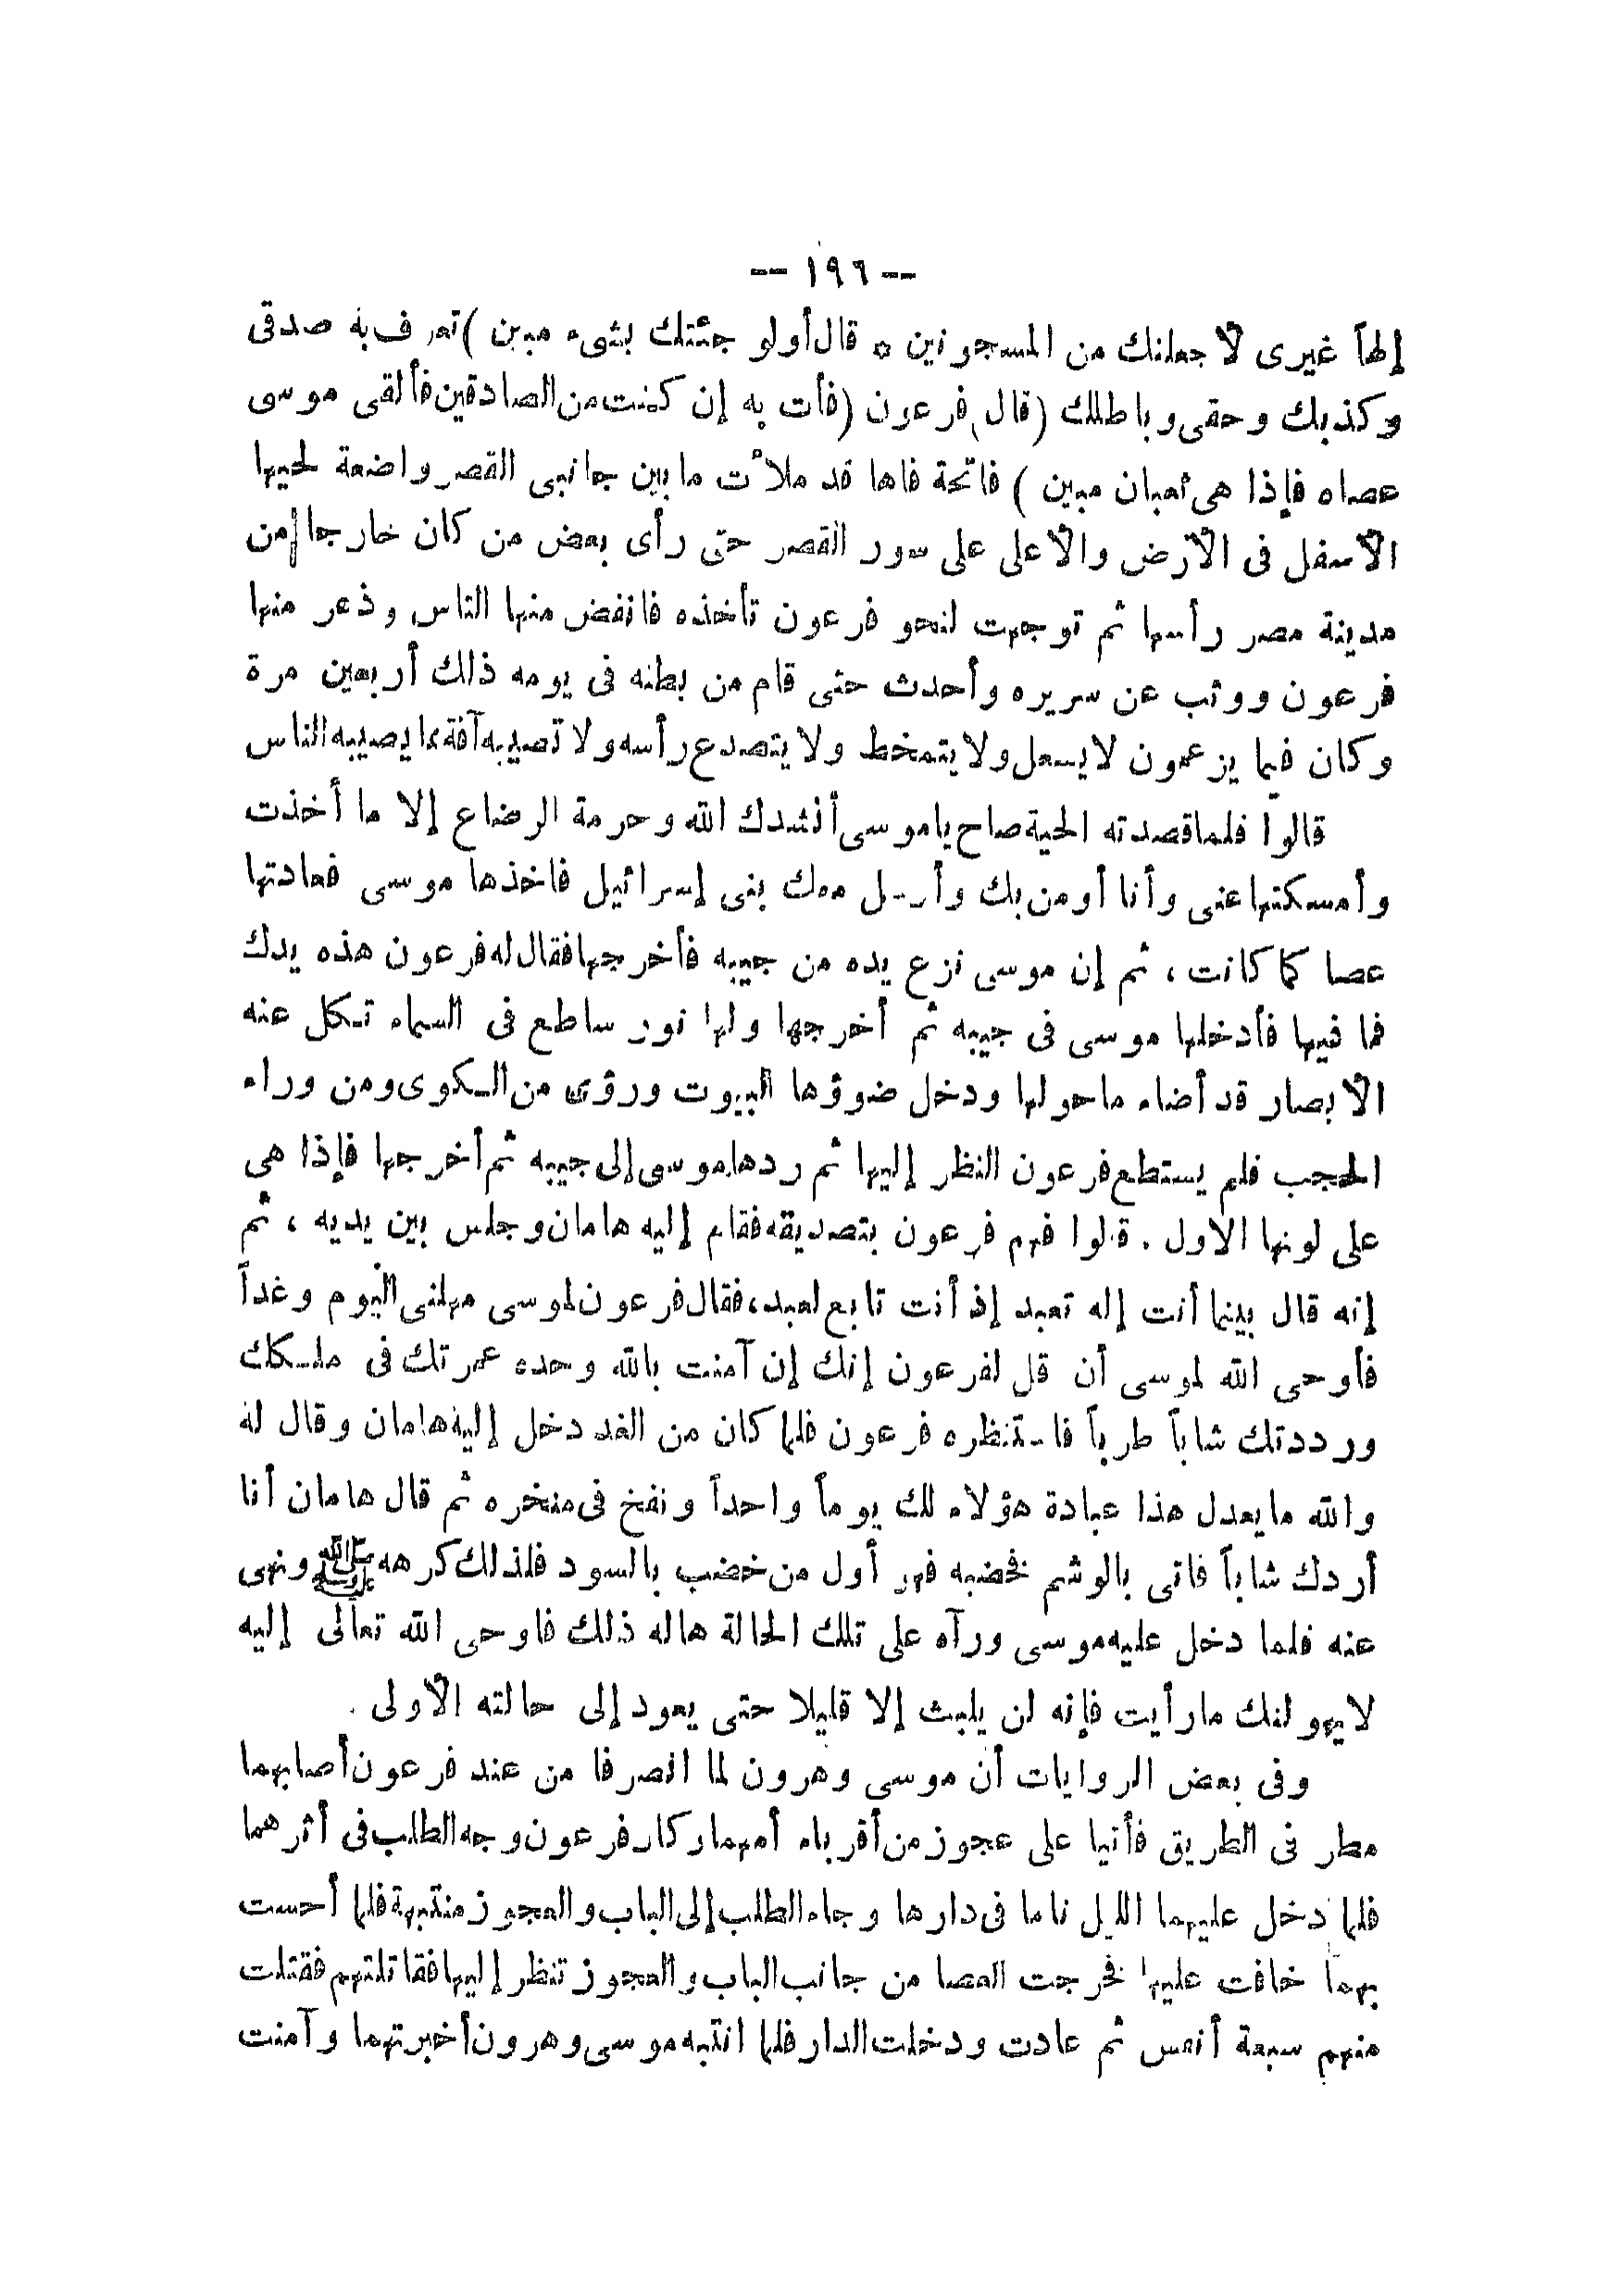 -- ١٩٦ --
إلهاً غيرى لأجعلنك من المسجونين * قال أولو جئتك بشىء مبين ) تعرف به صدقى
وكذبك وحقى وباطلك (قال) فرعون (فأت به إن كنت من الصادقين فألقى موسى
عصاه فإذا هى ثعبان مبين ) فاتحة فاها قد ملأت ما بين جانبى القصر واضعة لحيها
الأسفل فى الأرض والأعلى على سور القصر حتى رأى بعض من كان خارجا من
مدينة مصر رأسها ثم توجهت لنحو فرعون تأخذه فانفض منها الناس وذعر منها
فرعون ووثب عن سريره وأحدث حتى قام من بطنه فى يومه ذلك أربعين مرة
وكان فيما يزعمون لا يسعل ولا يتمخط ولا يتصدع رأسه ولا تصيبه آفة مما يصيبه الناس
قالوا فلما قصدته الحية صاح ياموسى أنشدك الله وحرمة الرضاع إلا ما أخذت
وأمسكتها عنى وأنا أومن بك وأرسل معك بنى إسرائيل فاخذها موسى فعادتها
عصا كما كانت ، ثم إن موسى نزع يده من جيبه فأخرجها فقال له فرعون هذه يدك
فما فيها فأدخلها موسى فى جيبه ثم أخرجها ولها نور ساطع فى السماء تكل عنه
الأبصار قد أضاء ما حولها ودخل ضوؤها البيوت ورؤى من الكوى ومن وراء
الحجب فلم يستطع فرعون النظر إليها ثم ردها موسى إلى جيبه ثم أخرجها فإذا هى
على لونها الأول . قالوا فهم فرعون بتصديقه فقام إليه هامان وجلس بين يديه ، ثم
إنه قال بينما أنت إله تعبد إذ أنت تابع لعبد، فقال فرعون لموسى مهلنى اليوم وغداً
فأوحى الله لموسى أن قل لفرعون إنك إن آمنت بالله وحده عمرتك فى ملكك
ورددتك شاباً طرياً فاستنظره فرعون فلما كان من الغد دخل إليه هامان وقال له
والله ما يعدل هذا عبادة هؤلاء لك يوماً واحداً ونفخ فى منخره ثم قال هامان أنا
أردك شاباً فاتى بالوشم فخضبه فهو أول من خضب بالسود فلذلك كرهه ﷺ ونهى
عنه فلما دخل عليه موسى ورآه على تلك الحالة هاله ذلك فاوحى الله تعالى إليه
لا يهولنك ما رأيت فإنه لن يلبث إلا قليلا حتى يعود إلى حالته الأولى .
وفى بعض الروايات أن موسى وهرون لما انصرفا من عند فرعون أصابهما
مطر فى الطريق فأتيا على عجوز من أقرباء أمهما وكان فرعون وجه الطلب فى أثرهما
فلما دخل عليهما الليل ناما فى دارها وجاء الطلب إلى الباب والعجوز منتبهة فلما أحست
بهما خافت عليها فخرجت العصا من جانب الباب والعجوز تنظر إليها فقاتلتهم فقتلت
منهم سبعة أنفس ثم عادت ودخلت الدار فلما انتبه موسى وهرون أخبرتهما وآمنت